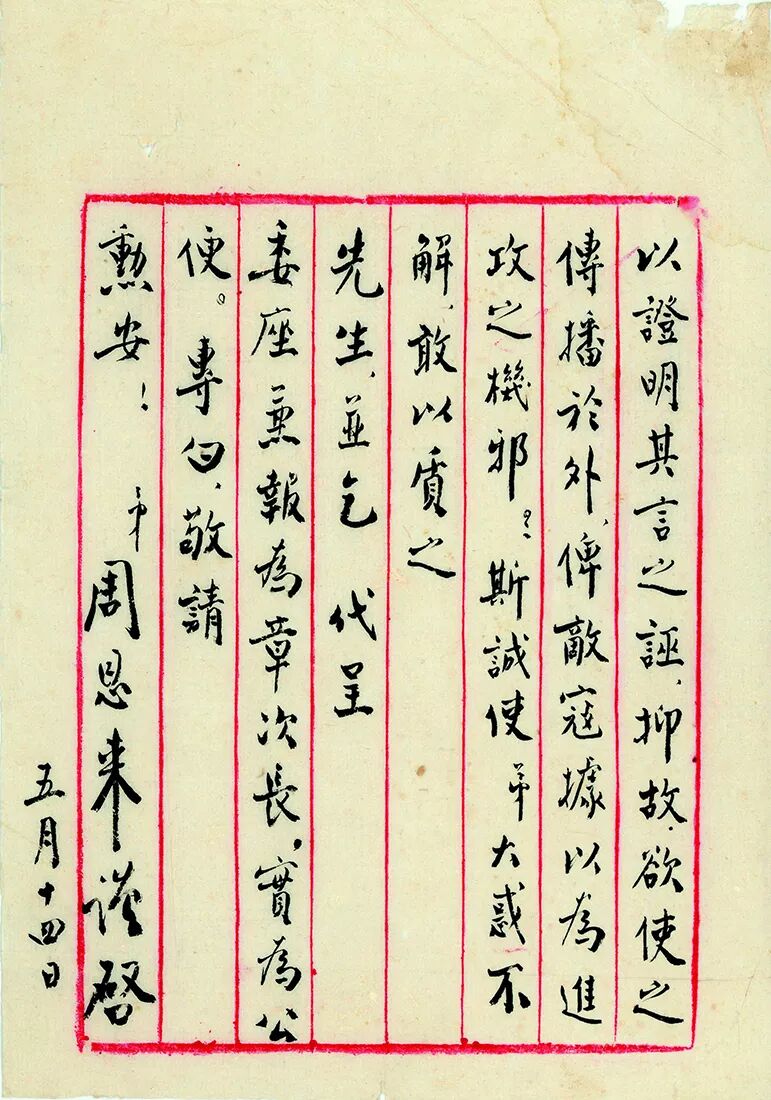 以證明其言之誣、抑故欲使之
傳播於外、俾敵寇據以為進
攻之機邪？斯誠使弟大惑不
解、敢以質之
先生、並乞 代呈
委座 報為章次長，實為公
便。專白、敬請
勳安！
弟周恩来谨啓
五月十四日